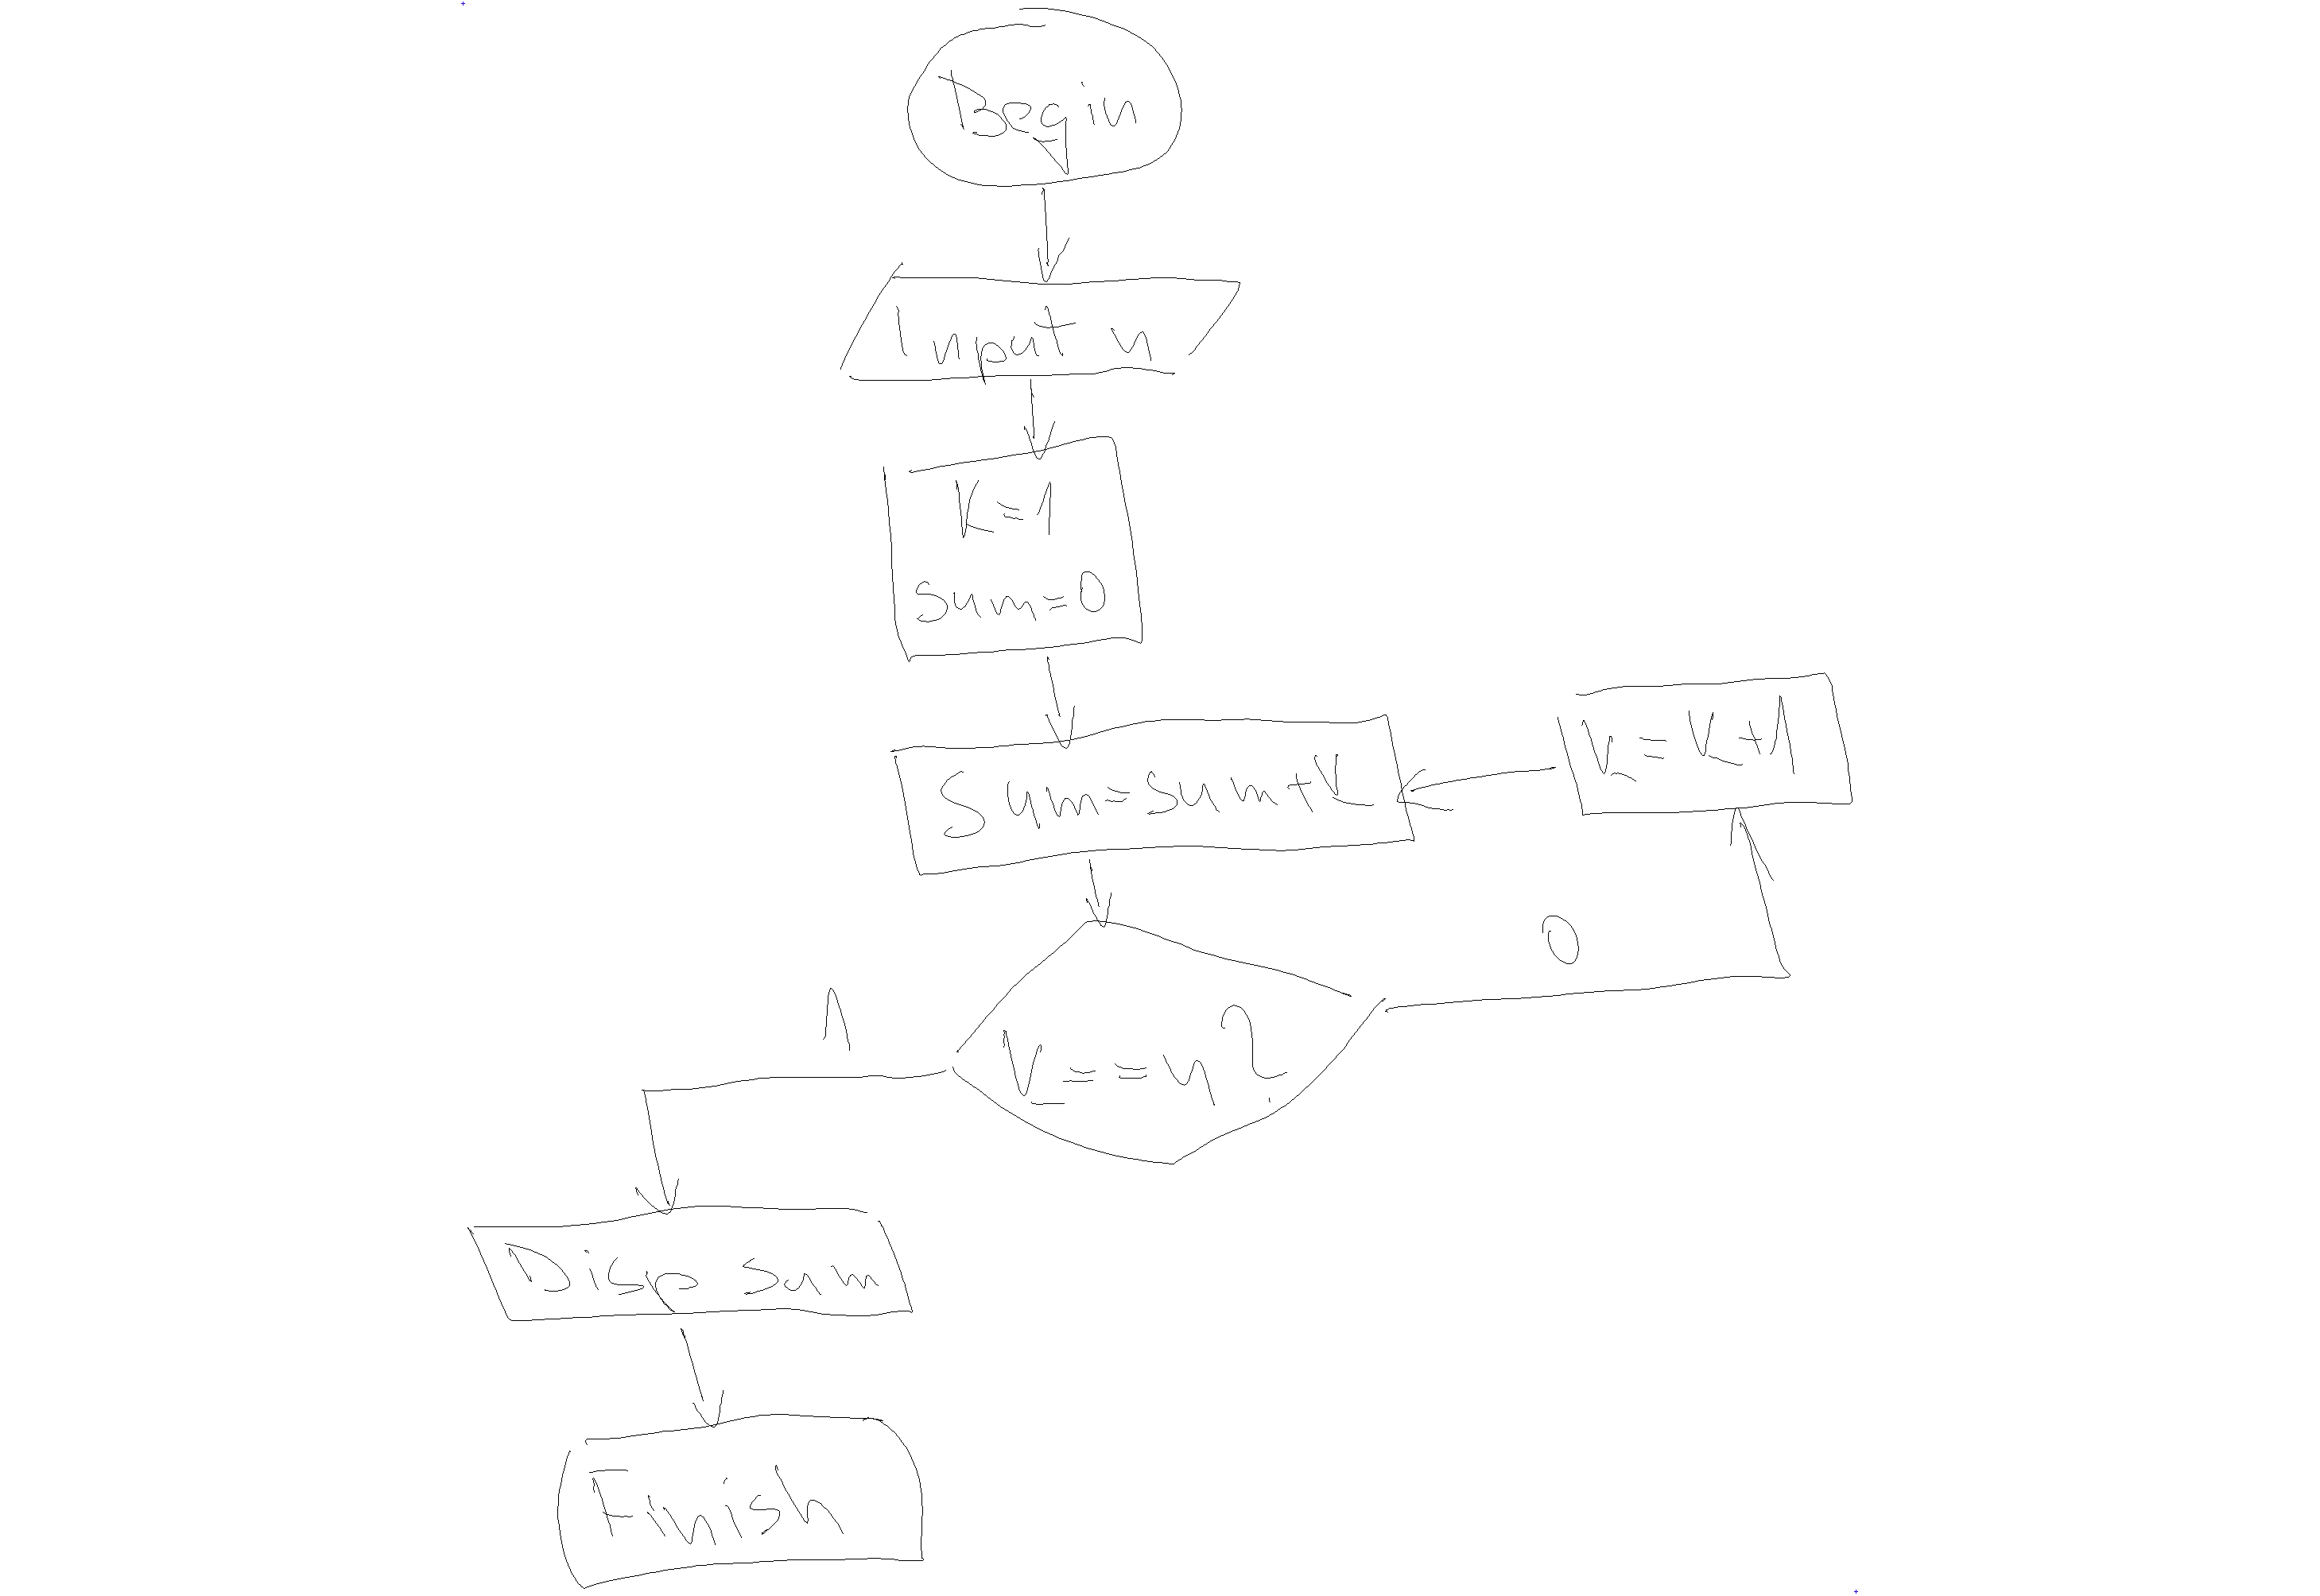 Begin
Input n
K=1
Sum=0
K=K+1
Sum=sum+K
0
1
K==n?
Disp sum
Finish